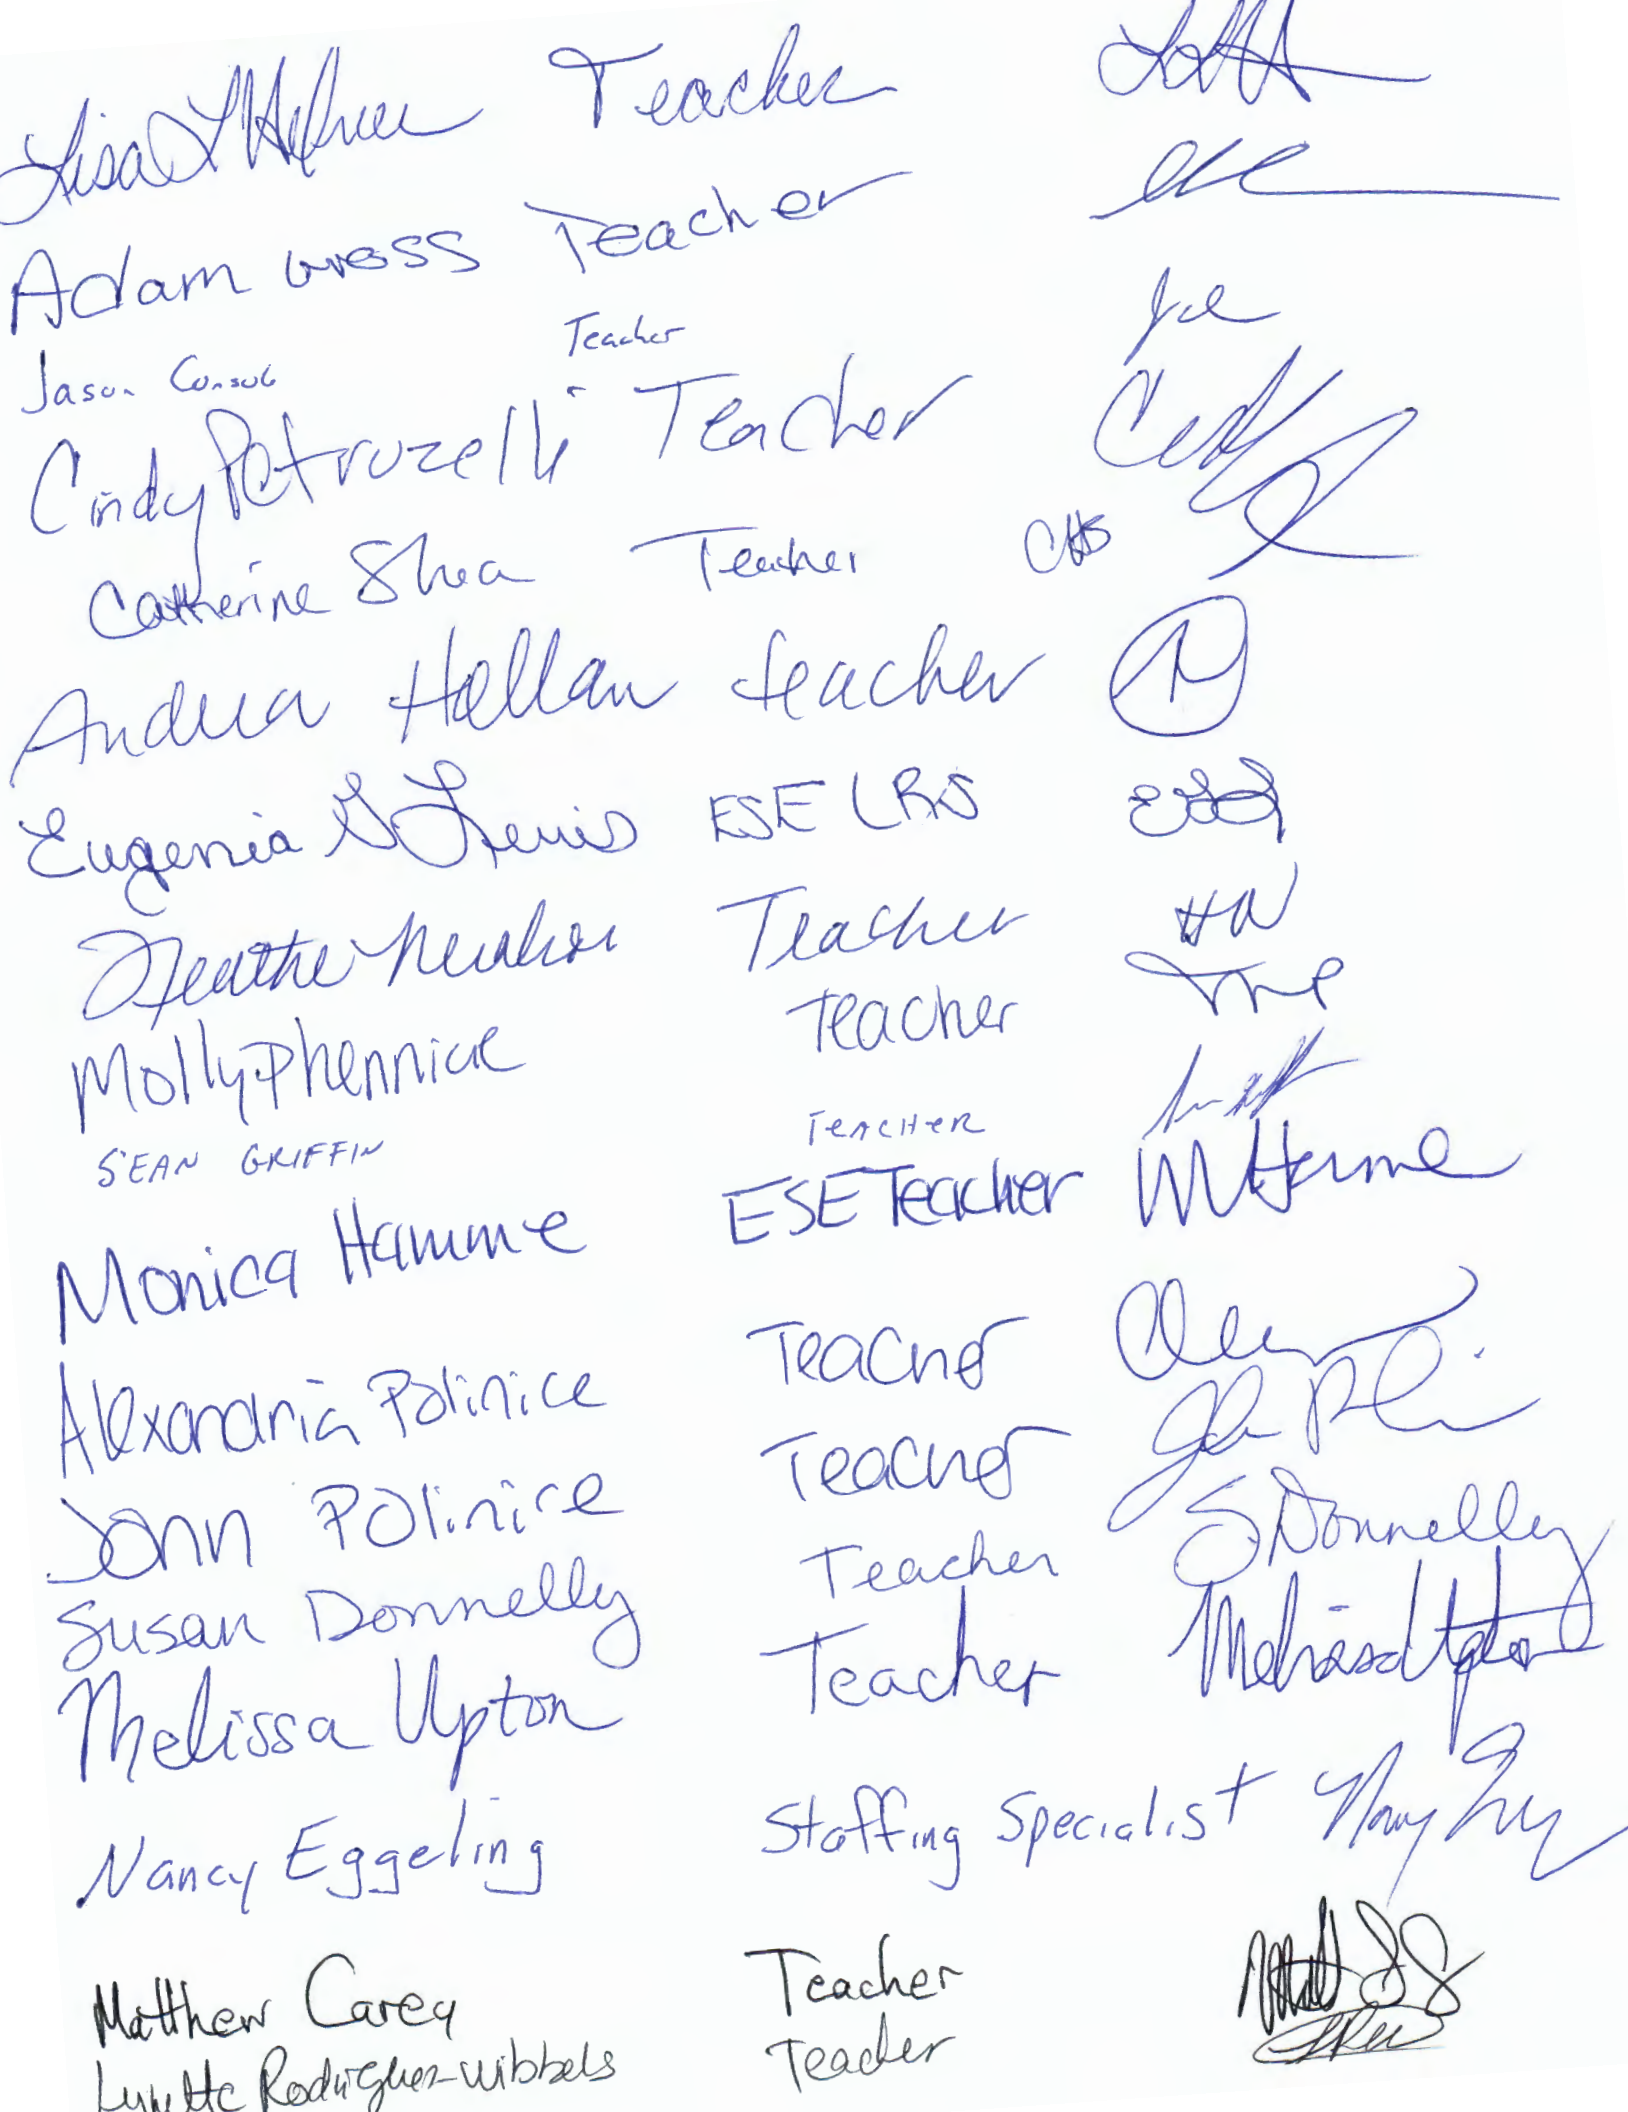 Lisa L Hefner Teacher
Adam Gross Teacher
Jason Consol Teacher
Cindy Petruzelli Teacher
Catherine Shea Teacher CHS
Andrea Hallan teacher
Eugenia G Lewis ESE LRS
Heather Teacher HN
Molly Phennice Teacher
SEAN GRIFFIN TEACHER
Monica Hamme ESE Teacher M Hamme
Alexandria Polinice Teacher
John Polinice Teacher
Susan Donnelly Teacher S Donnelly
Melissa Upton Teacher Melissa Upton
Nancy Eggeling Staffing Specialist
Matthew Carey Teacher
Lynette Rodriguez-Wibbels Teacher